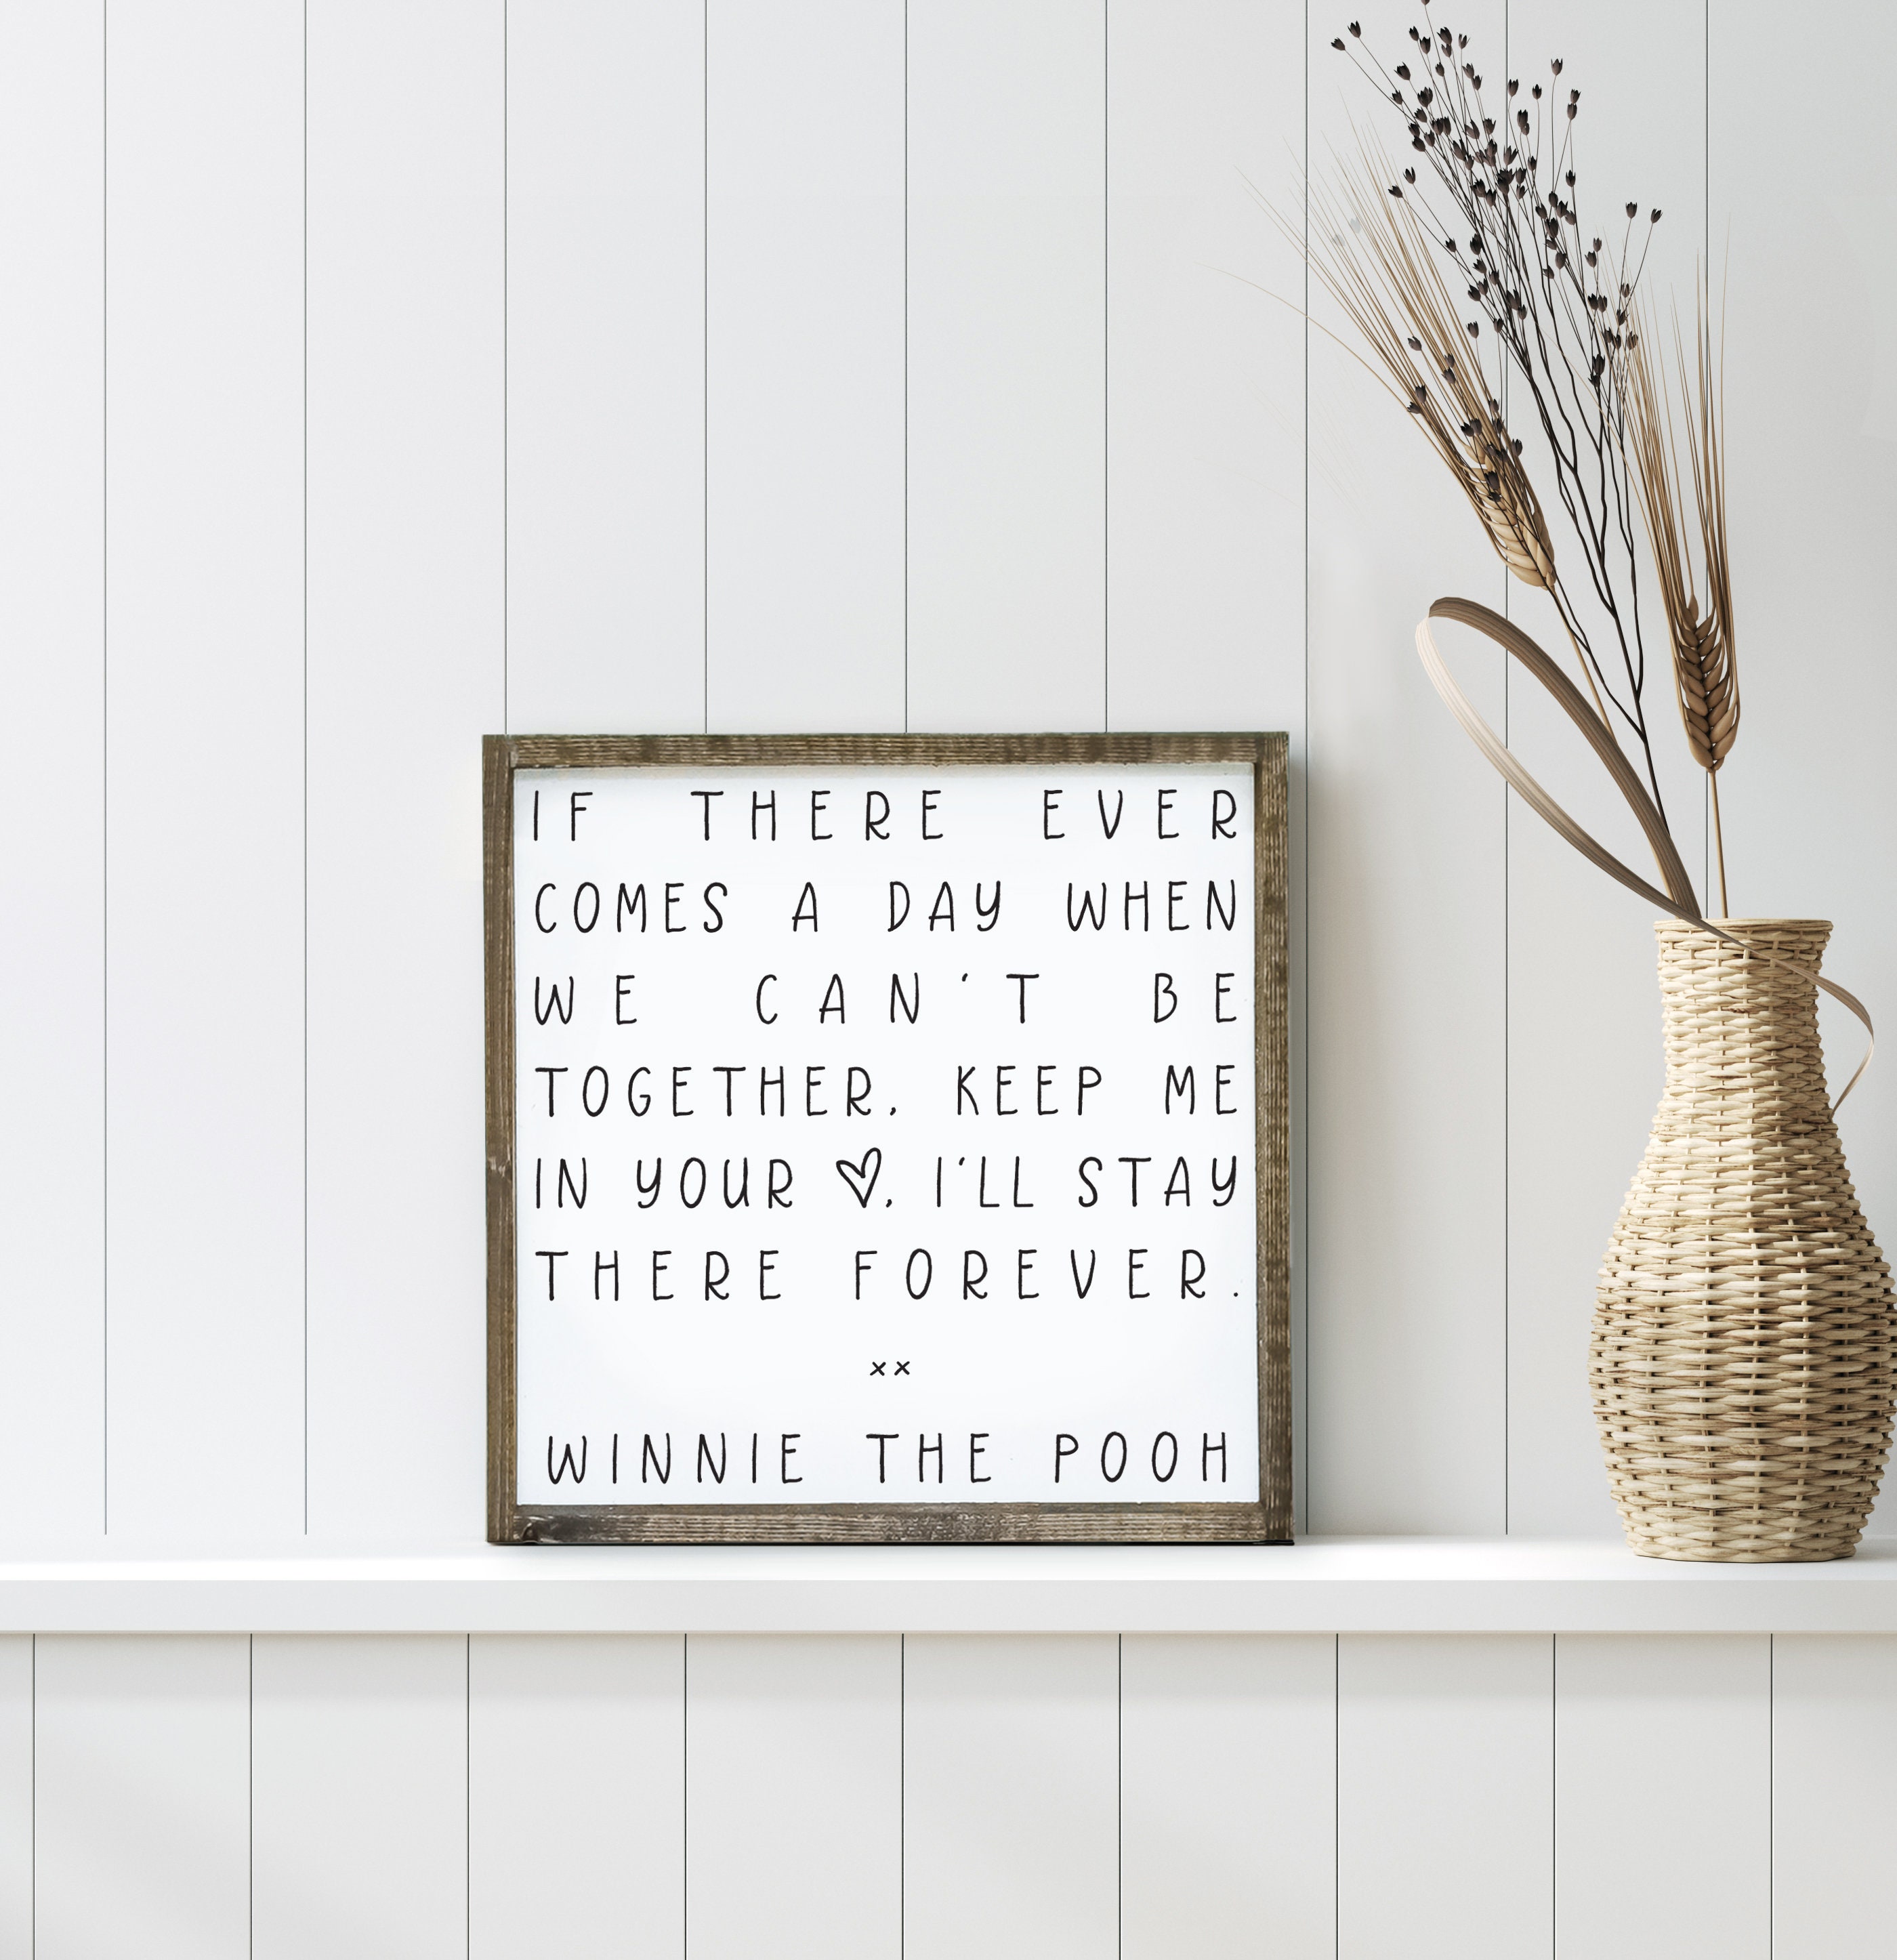 IF THERE EVER
COMES A DAY WHEN
WE CAN'T BE
TOGETHER, KEEP ME
IN YOUR ♡, I'LL STAY
THERE FOREVER.
xx
WINNIE THE POOH